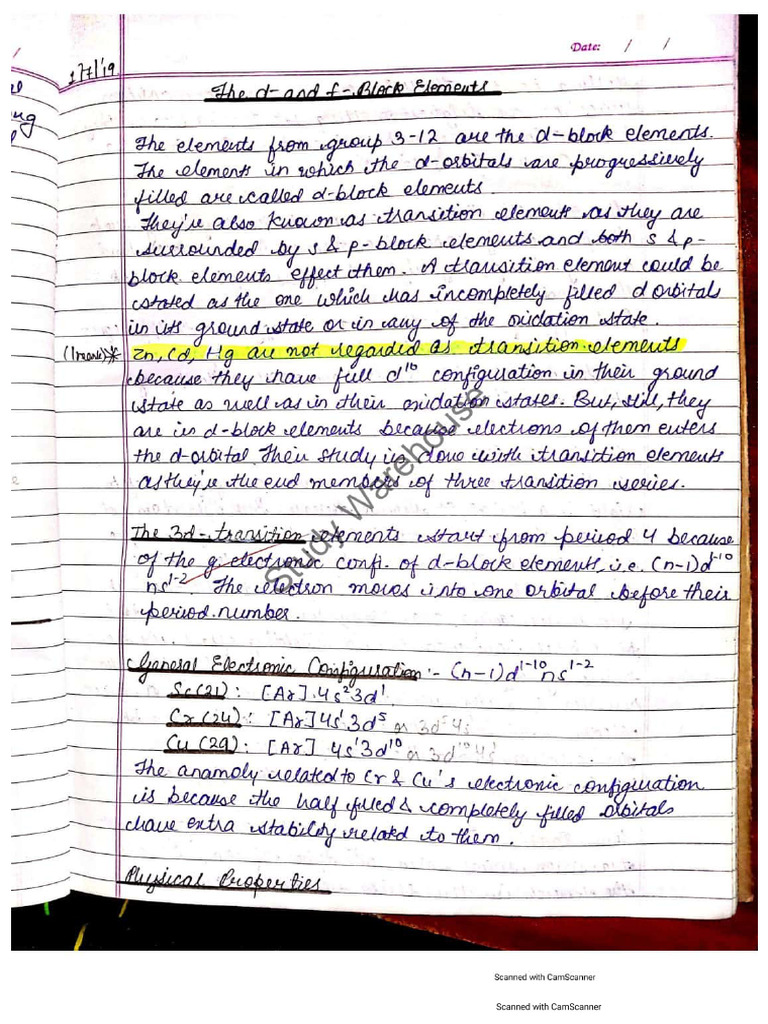 Date: / /
1/7/19.
The d- and f- Block Elements
The elements from group 3-12 are the d-block elements.
The elements in which the d-orbitals are progressively
filled are called d-block elements.
They're also known as transition elements as they are
surrounded by s & p-block elements and both s & p-
block elements effect them. A transition element could be
stated as the one which has incompletely filled d orbitals
in its ground state or in any of the oxidation state.
(1 mark)* Zn, Cd, Hg are not regarded as transition elements
because they have full d¹⁰ configuration in their ground
state as well as in their oxidation states. But, still, they
are in d-block elements because electrons of them enters
the d-orbital. Their study is done with transition elements
as they're the end members of three transition series.
The 3d-transition elements start from period 4 because
of the g. electronic confi. of d-block elements, i.e. (n-1)d¹⁻¹⁰
ns¹⁻². The electron moves into one orbital before their
period number.
General Electronic Configuration :- (n-1)d¹⁻¹⁰ ns¹⁻²
Sc(21) : [Ar] 4s² 3d¹
Cr(24) : [Ar] 4s¹ 3d⁵ or 3d⁵ 4s¹
Cu(29) : [Ar] 4s¹ 3d¹⁰ or 3d¹⁰ 4s¹
The anamoly related to Cr & Cu's electronic configuration
is because the half filled & completely filled orbitals
have extra stability related to them.
Physical Properties
Study Warehouse
Scanned with CamScanner
Scanned with CamScanner